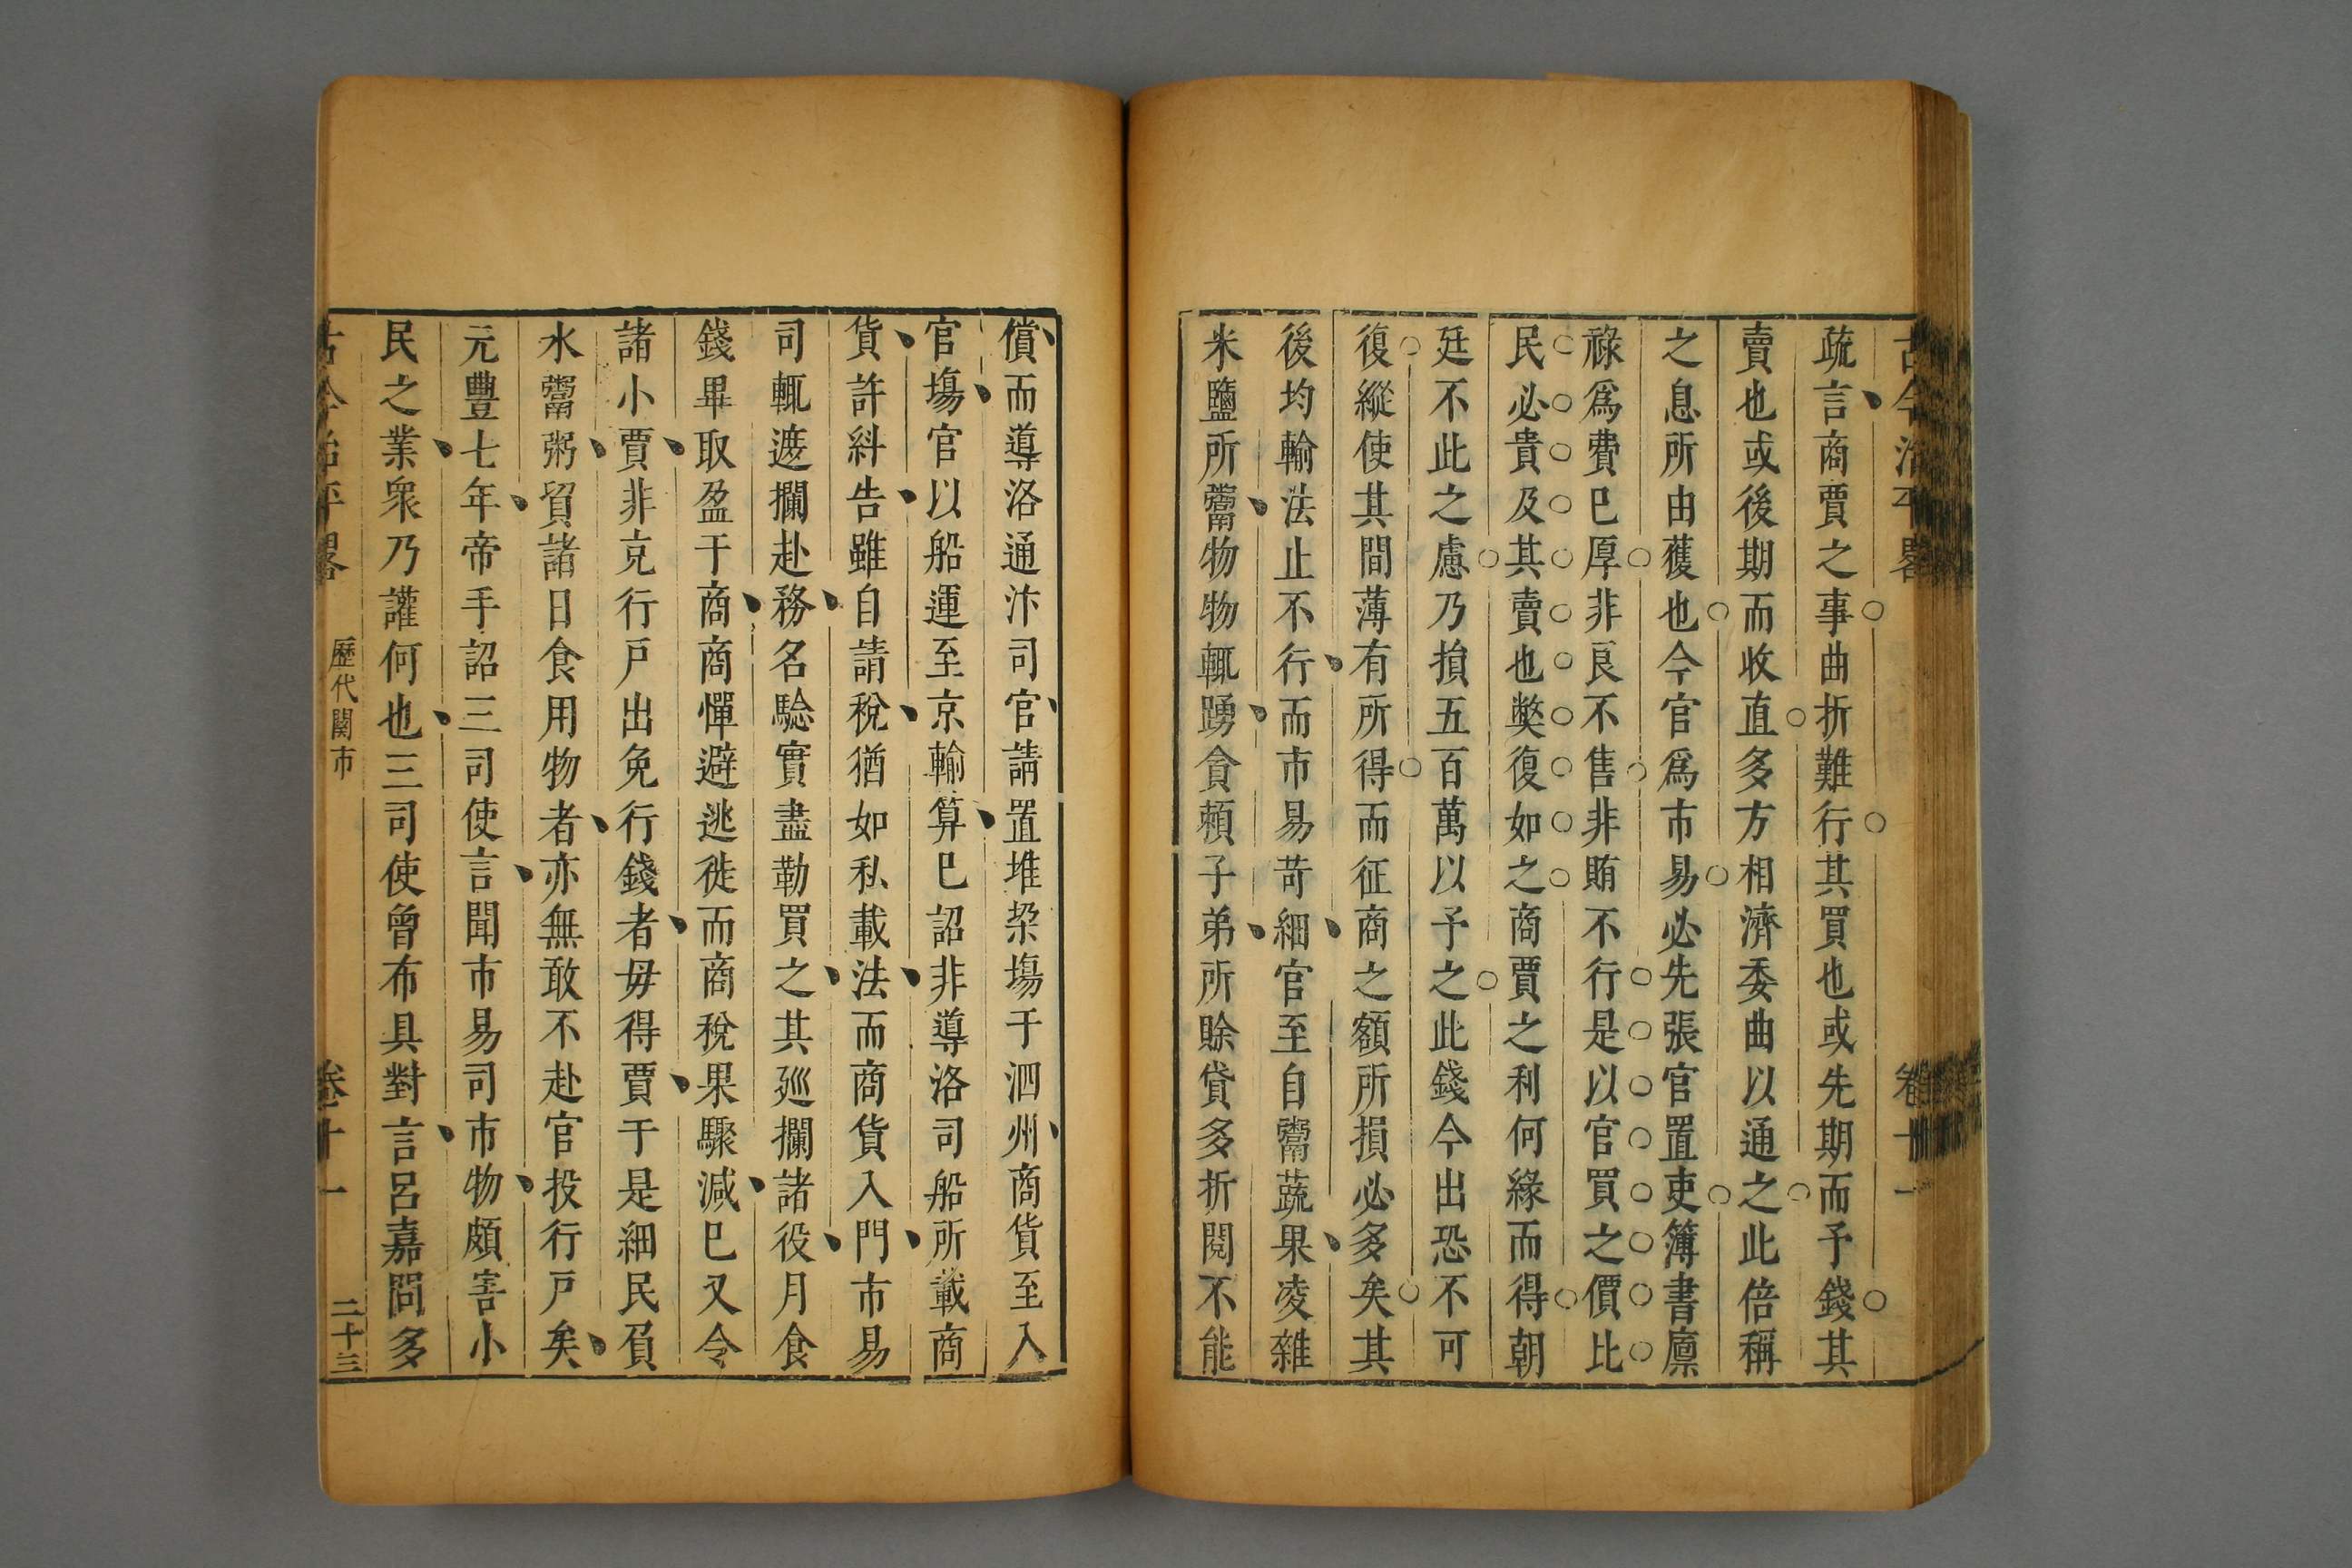 古今治平畧
卷十一
疏言商賈之事曲折難行其買也或先期而予錢其
賣也或後期而收直多方相濟委曲以通之此倍稱
之息所由獲也今官爲市易必先張官置吏簿書廪
祿爲費已厚非良不售非賄不行是以官買之價比
民必貴及其賣也獘復如之商賈之利何緣而得朝
廷不此之慮乃損五百萬以予之此錢今出恐不可
復縱使其間薄有所得而征商之額所損必多矣其
後均輸法止不行而市易苛細官至自鬻蔬果凌雜
米鹽所鬻物物輒踴貪賴子弟所賒貸多折閱不能
償而導洛通汴司官請置堆垜塲于泗州商貨至入
官塲官以船運至京輸算已詔非導洛司船所載商
貨許紏告雖自請稅猶如私載法而商貨入門市易
司輒遮攔赴務名驗實盡勒買之其廵攔諸役月食
錢畢取盈于商商憚避逃徙而商稅果驟減已又令
諸小賈非克行戶出免行錢者毋得賈于是細民負
水鬻粥貿諸日食用物者亦無敢不赴官投行戶矣
元豐七年帝手詔三司使言聞市易司市物頗害小
民之業衆乃讙何也三司使曾布具對言呂嘉問多
古今治平畧
歷代關市
卷十一
二十三